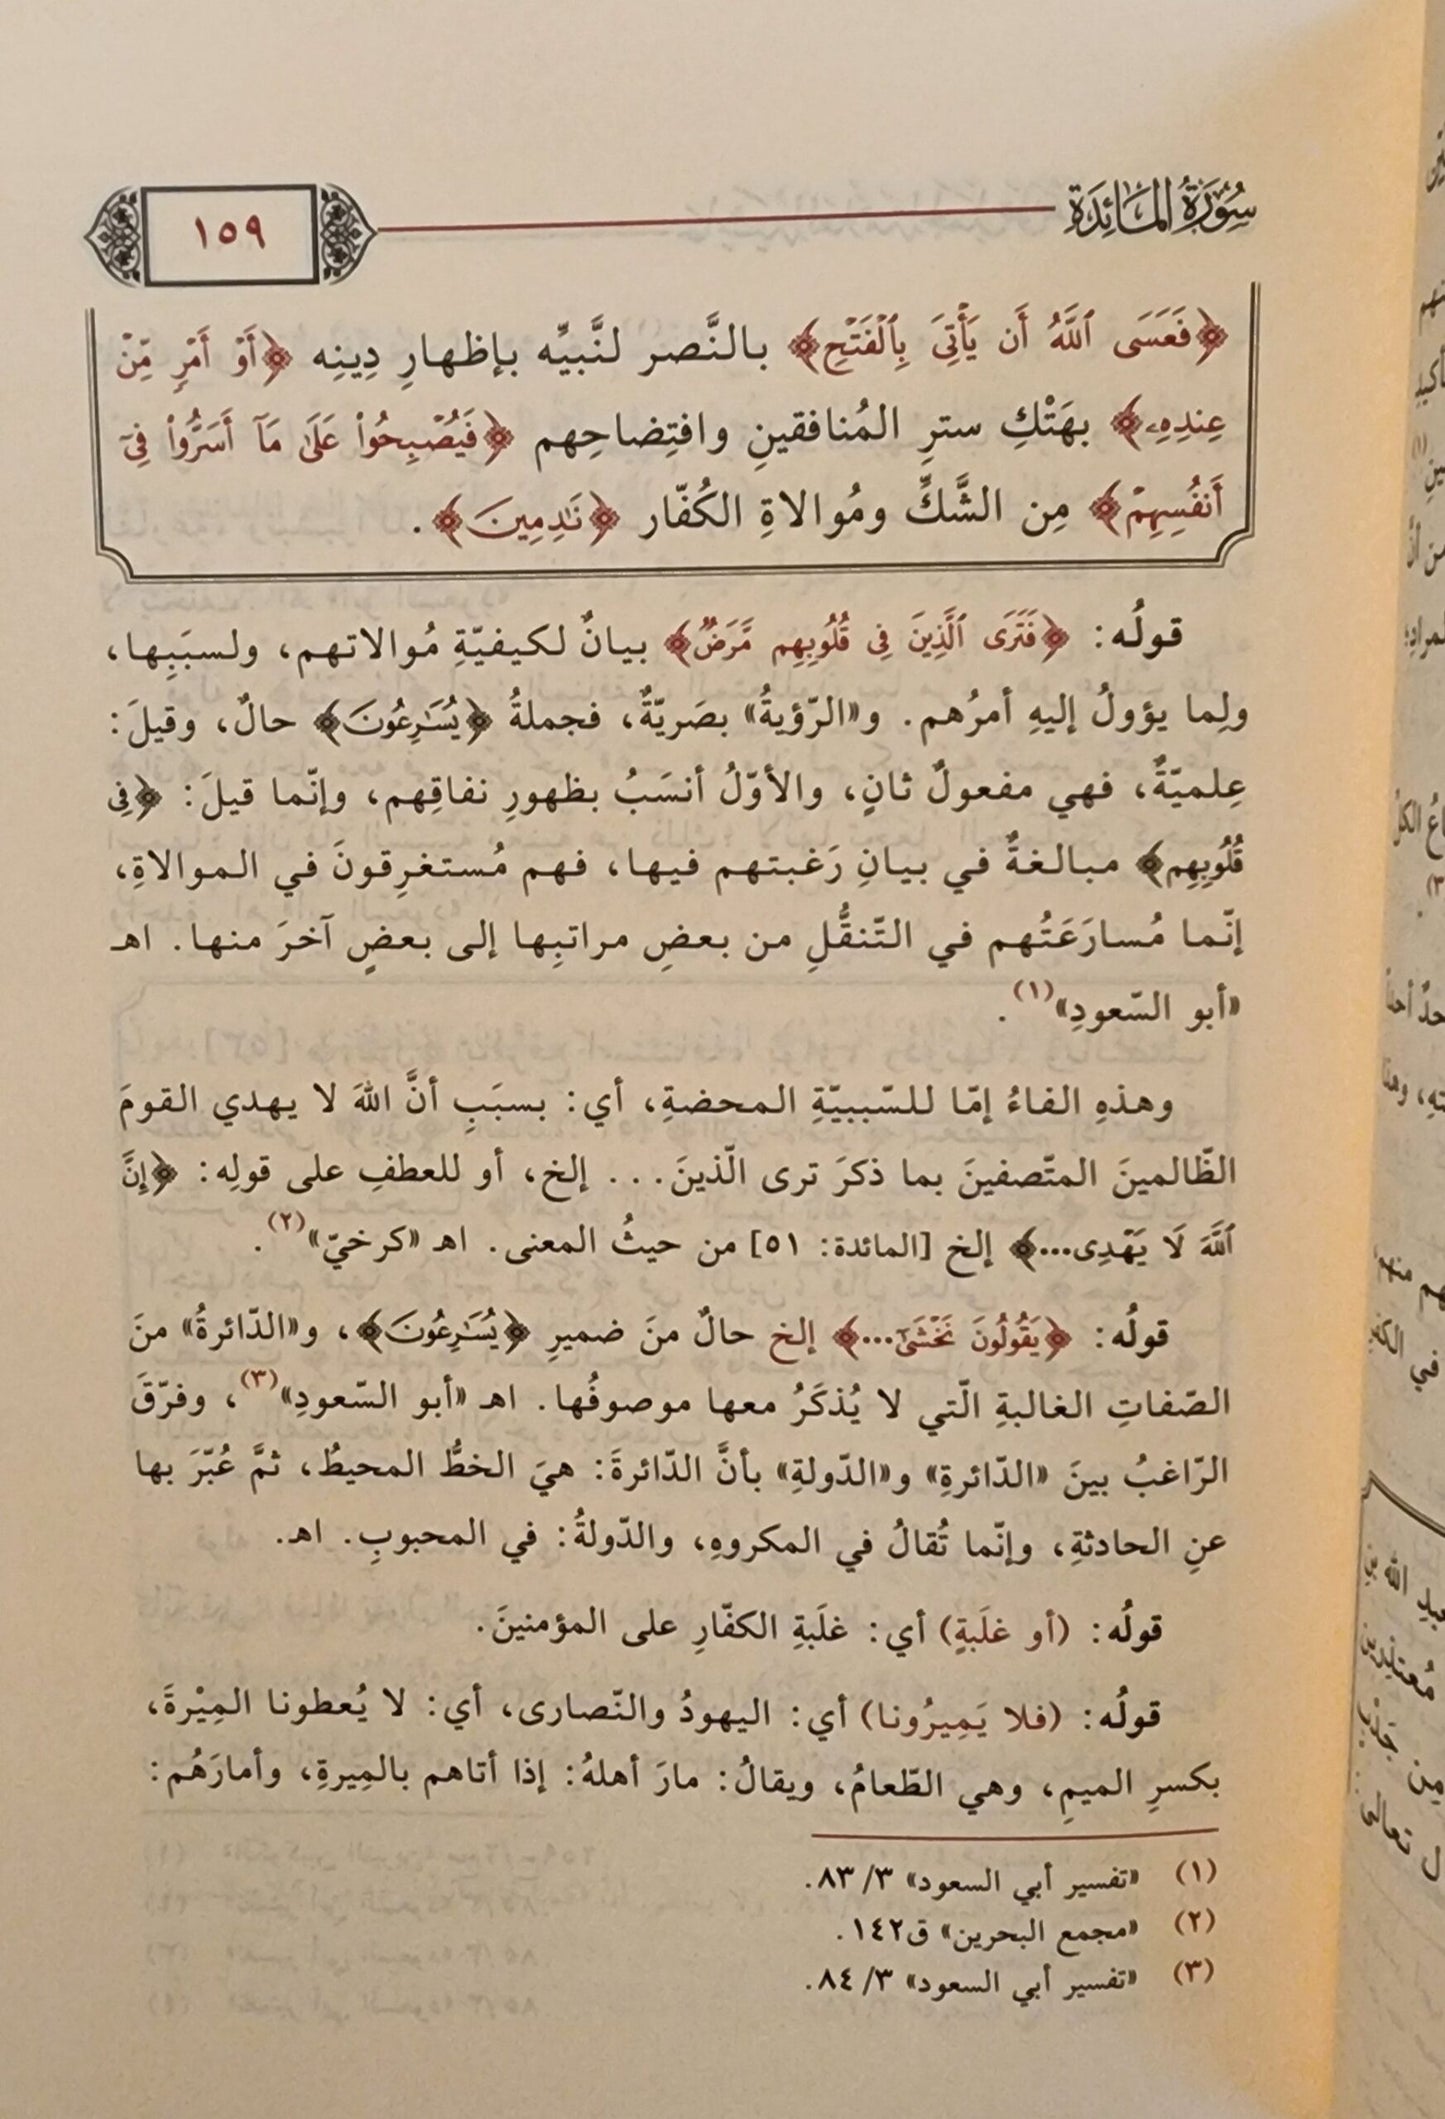 سُوْرَةُ المَائِدَة
١٥٩
﴿فَعَسَى ٱللَّهُ أَن يَأْتِىَ بِٱلْفَتْحِ﴾ بالنَّصر لنَّبيِّه بإظهارِ دِينِه ﴿أَوْ أَمْرٍ مِّنْ
عِندِهِۦ﴾ بهَتْكِ سترِ المُنافقينِ وافتِضاحِهم ﴿فَيُصْبِحُوا۟ عَلَىٰ مَآ أَسَرُّوا۟ فِىٓ
أَنفُسِهِمْ﴾ مِن الشَّكِّ ومُوالاةِ الكُفّار ﴿نَـٰدِمِينَ﴾.
قولُه: ﴿فَتَرَى ٱلَّذِينَ فِى قُلُوبِهِم مَّرَضٌ﴾ بيانٌ لكيفيّةِ مُوالاتهم، ولسبَبِها،
ولِما يؤولُ إليهِ أمرُهم. و«الرّؤيةُ» بصَريّةٌ، فجملةُ ﴿يُسَـٰرِعُونَ﴾ حالٌ، وقيلَ:
عِلميّةٌ، فهي مفعولٌ ثانٍ، والأوّلُ أنسَبُ بظهورِ نفاقِهم، وإنّما قيلَ: ﴿فِى
قُلُوبِهِم﴾ مبالغةٌ في بيانِ رَغبتهم فيها، فهم مُستغرِقونَ في الموالاةِ،
إنّما مُسارَعَتُهم في التّنقُّلِ من بعضِ مراتبِها إلى بعضٍ آخرَ منها. اهـ
«أبو السّعودِ»(١).
وهذهِ الفاءُ إمّا للسّببيّةِ المحضةِ، أي: بسبَبِ أنَّ اللهَ لا يهدي القومَ
الظّالمينَ المتّصفينَ بما ذكرَ ترى الّذينَ... إلخ، أو للعطفِ على قولِه: ﴿إِنَّ
ٱللَّهَ لَا يَهْدِى...﴾ إلخ [المائدة: ٥١] من حيثُ المعنى. اهـ «كرخيّ»(٢).
قولُه: ﴿يَقُولُونَ نَخْشَىٰٓ...﴾ إلخ حالٌ منَ ضميرِ ﴿يُسَـٰرِعُونَ﴾، و«الدّائرةُ» منَ
الصّفاتِ الغالبةِ الّتي لا يُذكَرُ معها موصوفُها. اهـ «أبو السّعودِ»(٣)، وفرّقَ
الرّاغبُ بينَ «الدّائرةِ» و«الدّولةِ» بأنَّ الدّائرةَ: هيَ الخطُّ المحيطُ، ثمَّ عُبّرَ بها
عنِ الحادثةِ، وإنّما تُقالُ في المكروهِ، والدّولةُ: في المحبوبِ. اهـ.
قولُه: (أو غلَبةٍ) أي: غلَبةِ الكفّارِ على المؤمنينَ.
قولُه: (فلا يَمِيرُونا) أي: اليهودُ والنّصارى، أي: لا يُعطونا المِيْرةَ،
بكسرِ الميمِ، وهي الطّعامُ، ويقالُ: مارَ أهلهُ: إذا أتاهم بالمِيرةِ، وأمارَهُم:
(١) «تفسير أبي السعود» ٣/ ٨٣.
(٢) «مجمع البحرين» ق١٤٢.
(٣) «تفسير أبي السعود» ٣/ ٨٤.